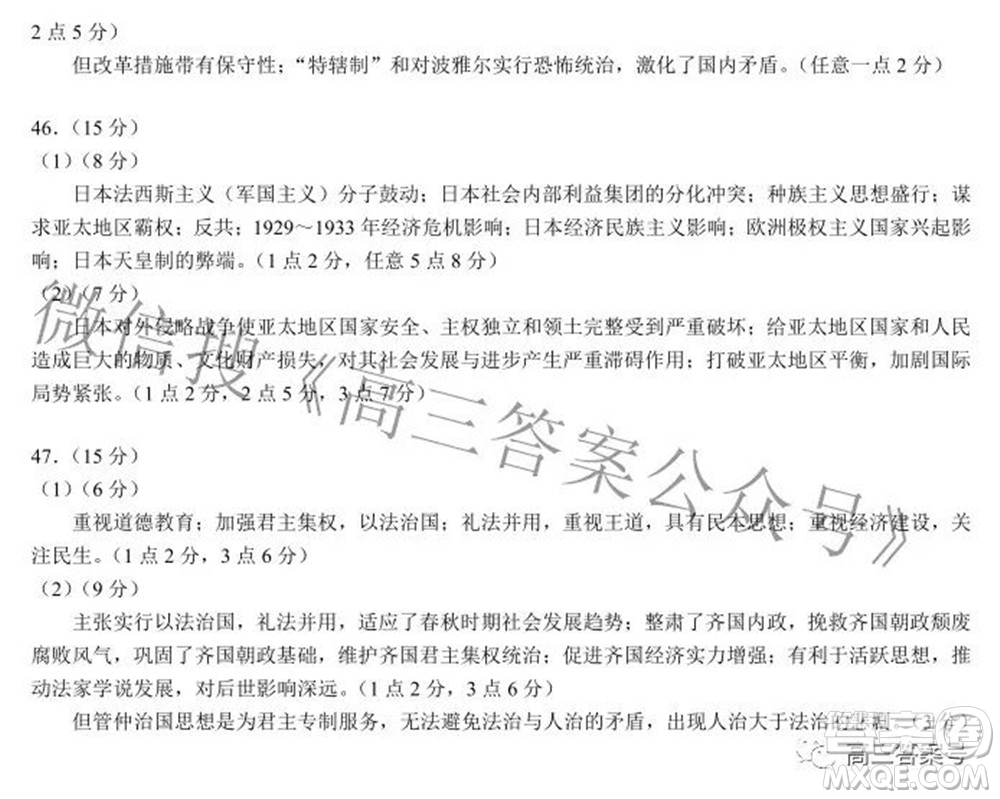 2 点 5 分）
但改革措施带有保守性；“特辖制”和对波雅尔实行恐怖统治，激化了国内矛盾。（任意一点 2 分）
46．（15 分）
（1）（8 分）
日本法西斯主义（军国主义）分子鼓动；日本社会内部利益集团的分化冲突；种族主义思想盛行；谋
求亚太地区霸权；反共；1929～1933 年经济危机影响；日本经济民族主义影响；欧洲极权主义国家兴起影
响；日本天皇制的弊端。（1 点 2 分，任意 5 点 8 分）
（2）（7 分）
日本对外侵略战争使亚太地区国家安全、主权独立和领土完整受到严重破坏；给亚太地区国家和人民
造成巨大的物质、文化财产损失，对其社会发展与进步产生严重滞碍作用；打破亚太地区平衡，加剧国际
局势紧张。（1 点 2 分，2 点 5 分，3 点 7 分）
47．（15 分）
（1）（6 分）
重视道德教育；加强君主集权，以法治国；礼法并用，重视王道，具有民本思想；重视经济建设，关
注民生。（1 点 2 分，3 点 6 分）
（2）（9 分）
主张实行以法治国，礼法并用，适应了春秋时期社会发展趋势；整肃了齐国内政，挽救齐国朝政颓废
腐败风气，巩固了齐国朝政基础，维护齐国君主集权统治；促进齐国经济实力增强；有利于活跃思想，推
动法家学说发展，对后世影响深远。（1 点 2 分，3 点 6 分）
但管仲治国思想是为君主专制服务，无法避免法治与人治的矛盾，出现人治大于法治的悲剧。（3 分）
微信搜《高三答案公众号》
高三答案号
答案圈
MXQE.COM